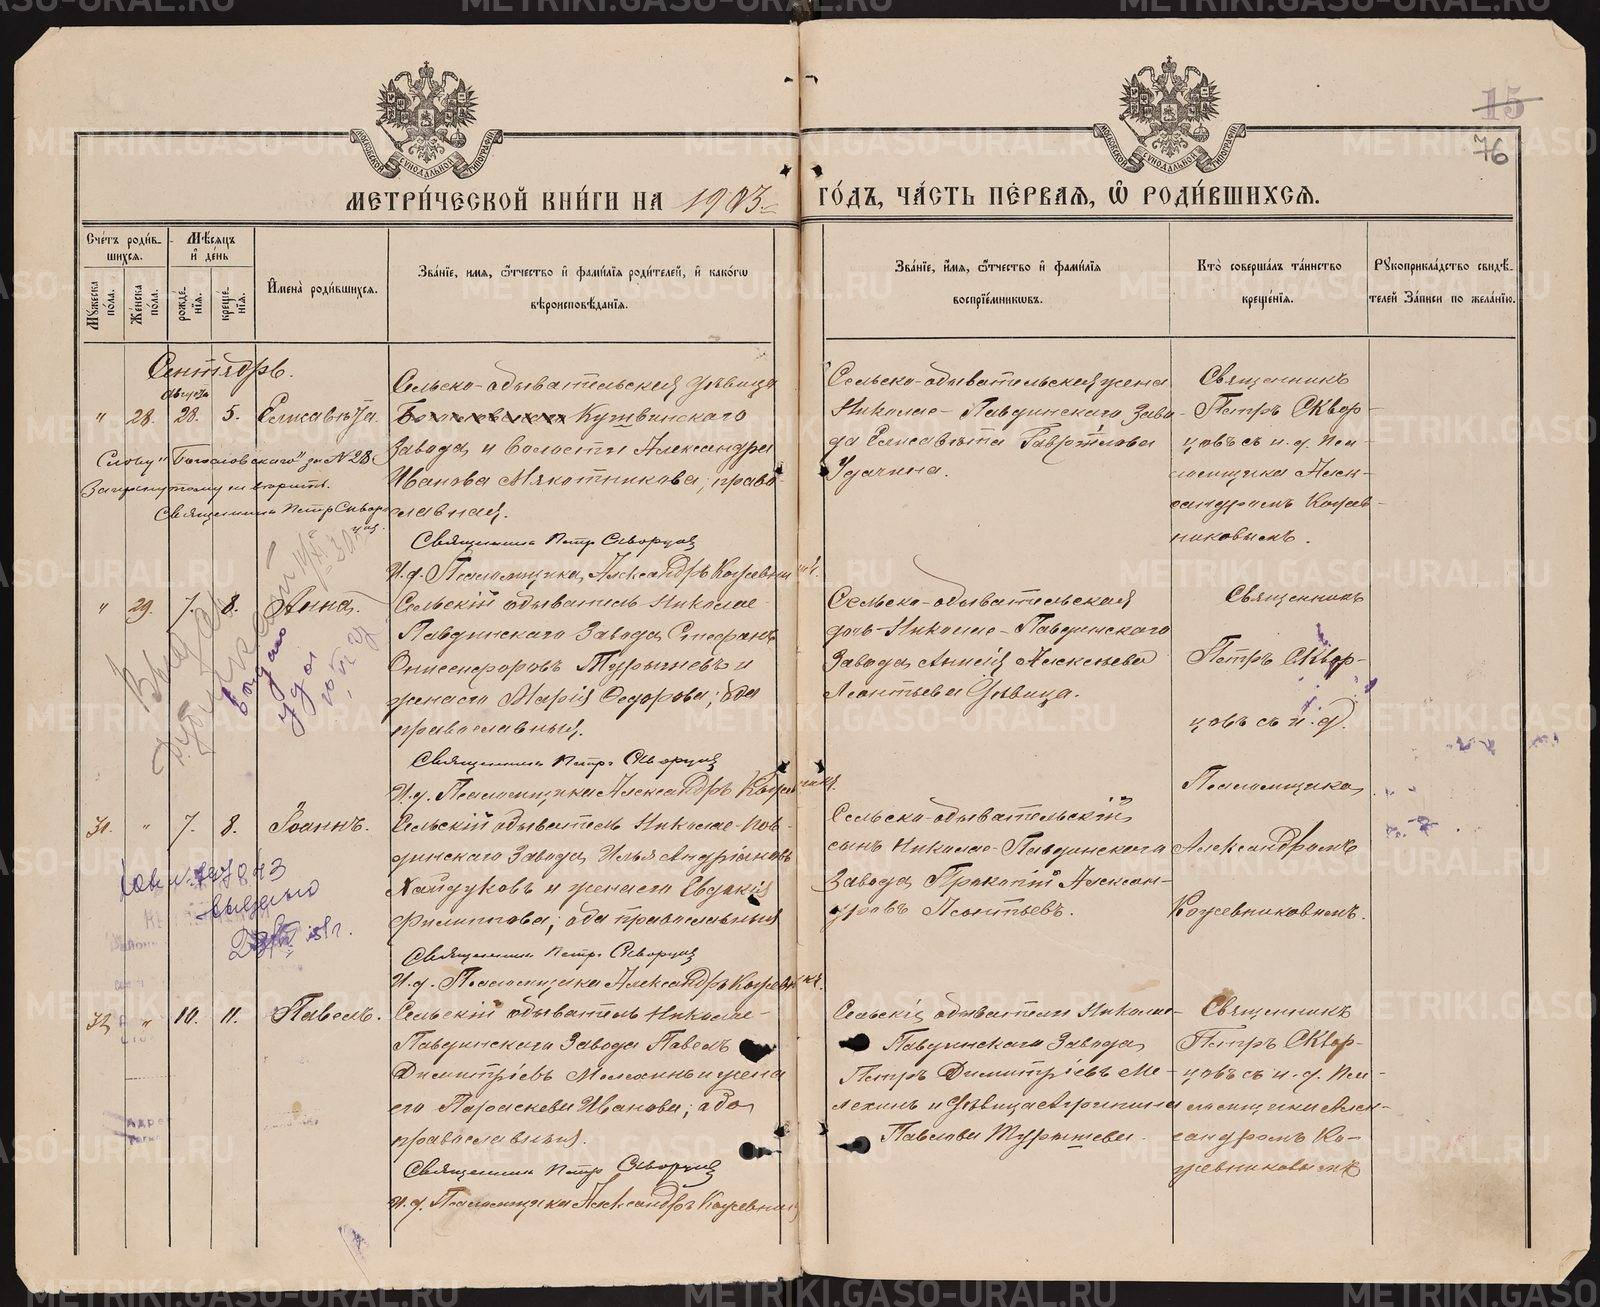 15
76
МЕТРИ́ЧЕСКОЙ КНИ́ГИ НА 1903 ГО́ДЪ, ЧА́СТЬ ПЕ́РВАЯ, Ѡ҆ РОДИ́ВШИХСЯ.
Сче́тъ роди́вшихся.
Му́жеска по́ла.
Же́нска по́ла.
Мѣ́сяцъ и҆ де́нь
рожде́нїя.
креще́нїя.
И҆мена̀ роди́вшихся.
Зва́нїе, и҆мя, ѻ҆́тчество и҆ фами́лїя роди́телей, и҆ како́гѡ
вѣроисповѣ́данїя.
Зва́нїе, и҆́мя, ѻ҆́тчество и҆ фами́лїя
воспрїе́мникѡвъ.
Кто̀ соверша́лъ та́инство
креще́нїя.
Рꙋкоприкла́дство свидѣ́телей За́писи по жела́нїю.
Сентябрь.
Августъ
" 28. 28. 5. Елисавѣта.
Слову "Богословскаго" за № 28
Зачеркнутому не вѣрить.
Священникъ Петръ Скворцов.
Сельско-обывательская дѣвица
Богословскаго Кушвинскаго
Завода и волости Александра
Иванова Мякотникова; православная.
Священникъ Петр Скворцов
И.д. Псаломщика Александръ Кожевников.
Сельско-обывательская жена
Николае-Павдинскаго Завода
Елисавета Гаврiилова
Удачина.
Священникъ
Петръ Сквор-
цовъ съ и.д. Пса-
ломщика Алек-
сандромъ Кожев-
никовымъ.
" 29. 7. 8. Анна.
Сельскій обыватель Николае-
Павдинскаго Завода Стефанъ
Онисифоровъ Турышевъ и
жена его Марія Федорова; оба
православные.
Священникъ Петръ Скворцов
И.д. Псаломщика Александръ Кожевников.
Сельско-обывательская
дочь Николае-Павдинскаго
Завода Алексеева
Леонтьева дѣвица.
Священникъ
Петръ Сквор-
цовъ съ и.д.
Псаломщика
Александромъ
Кожевниковымъ.
31. " 7. 8. Іоаннъ.
Сельскій обыватель Николае-Пав-
динскаго Завода Илья Андріановъ
Хайдуковъ и жена его Евдокія
Филиппова; оба православные
Священникъ Петръ Скворцов
И.д. Псаломщика Александръ Кожевников.
Сельско-обывательскій
сынъ Николае-Павдинскаго
Завода Прокопій Алексан-
дровъ Леонтьевъ.
выдано
32 " 10. 11. Павелъ.
Сельскій обыватель Николае-
Павдинскаго Завода Павелъ
Димитріевъ Мелехинъ и жена
его Параскева Иванова; оба
православные.
Священникъ Петръ Скворцов
И.д. Псаломщика Александръ Кожевников
Сельскіе обыватели Николае-
Павдинскаго Завода
Петръ Димитріевъ Ме-
лехинъ и дѣвица Агрипина
Павлова Турышева.
Священникъ
Петръ Сквор-
цовъ съ и.д. Пса-
ломщика Алек-
сандромъ Ко-
жевниковымъ
METRIKI.GASO-URAL.RU